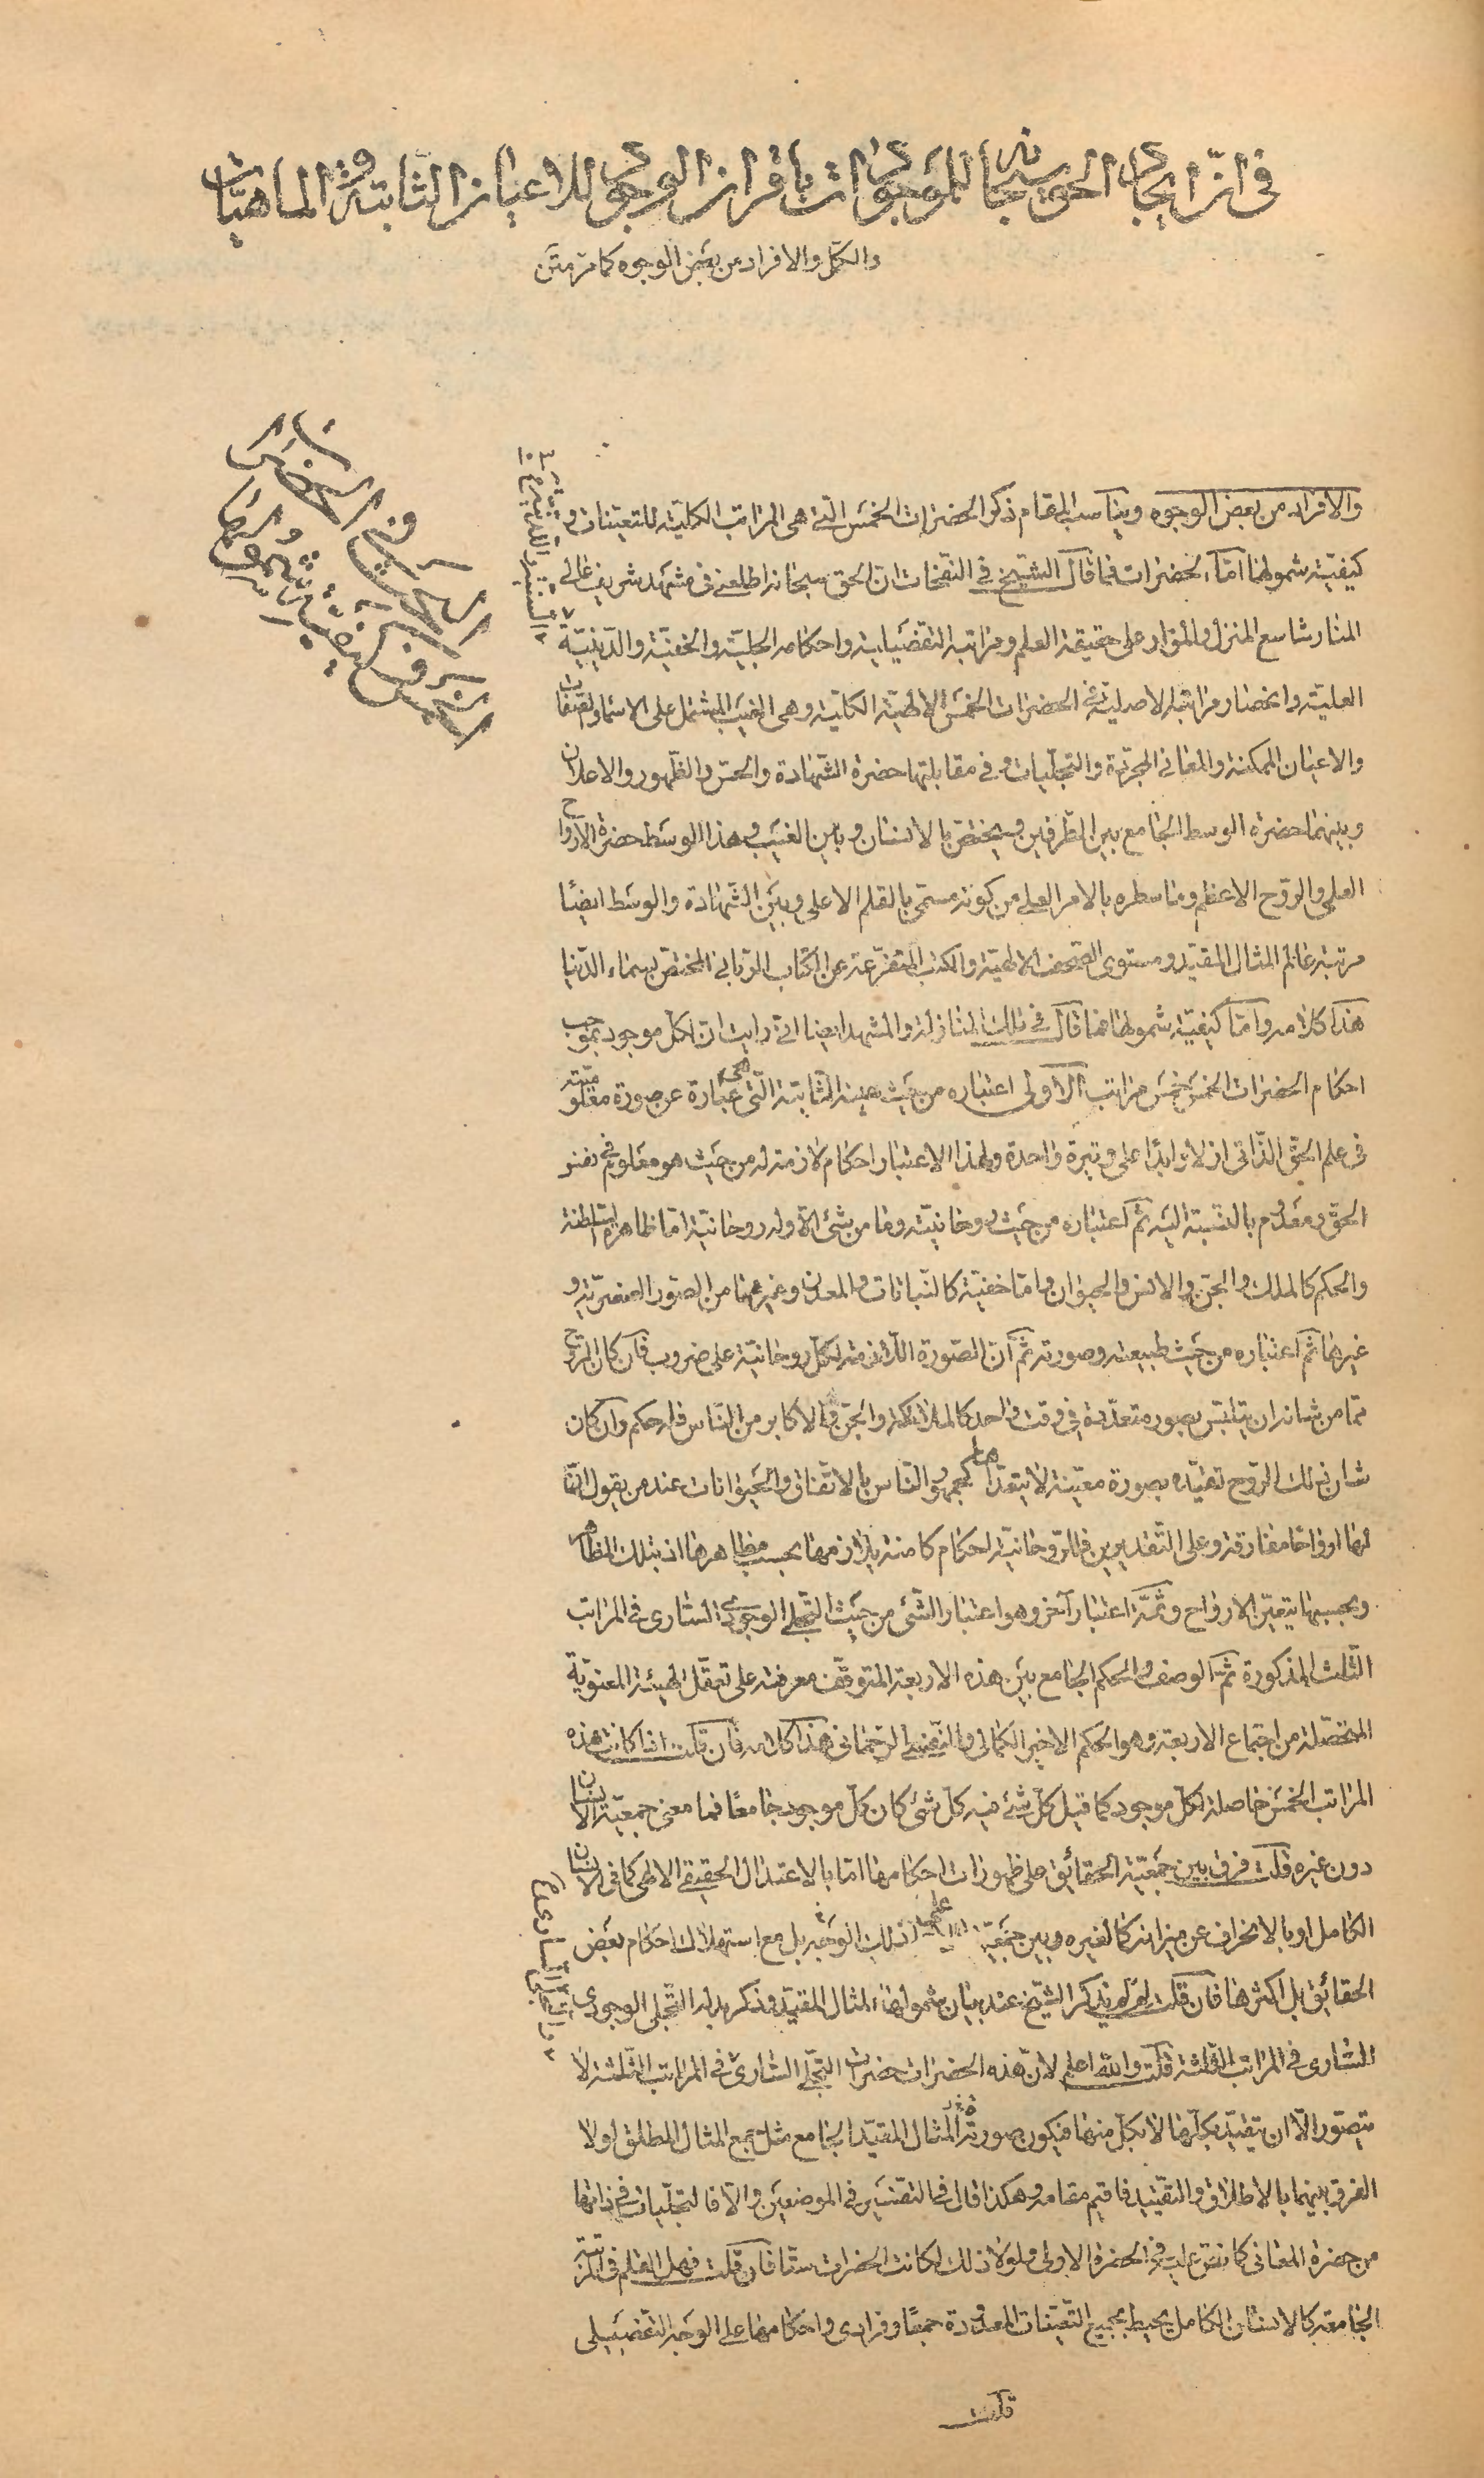 في انّ ايجاد الحق سبحانه للموجودات باقتران الوجود للاعيان الثابتة والماهيات
والكمّل والافراد من بعض الوجوه كما مر متن
والافراد من بعض الوجوه ويناسب المقام ذكر الحضرات الخمس الّتي هي المراتب الكليّة للتعيّنات و
كيفيّة شمولها امّا الحضرات فما قال الشيخ في النفحات انّ الحق سبحانه اطلعني في مشهد شريف عالي
المنار شاسع المنزل والمزار على حقيقة العلم ومراتبه التفصيلية واحكامه الجليّة والخفيّة والدّينيّة
العليّة وانحصار مراتبه الاصليّة في الحضرات الخمس الالهيّة الكليّة وهى الغيب المشتمل على الاسماء والصّفات
والاعيان الممكنة والمعاني المجرّدة والتجلّيات وفي مقابلتها حضرة الشّهادة والحسّ والظّهور والاعلان
وبينهما حضرة الوسط الجامع بين الطّرفين ويختصّ بالانسان وبين الغيب وهذا الوسط حضرة الارواح
العلى والروح الاعظم وما سطره بالامر العلي من كونه مسمّى بالقلم الاعلى وبين الشّهادة والوسط ايضًا
مرتبة عالم المثال المقيّد ومستوى الصّحف الالهيّة والكتب المتفرّعة عن الكتاب الرّبّاني المختصّ بسماء الدّنيا
هذا كلامه وامّا كيفيّة شمولها فما قال في تلك المنازلة والمشهد ايضا انّي رايت انّ لكلّ موجود بموجب
احكام الحضرات الخمس خمس مراتب الاولى اعتباره من حيث عينه الثّابتة الّتي هي عبارة عن صورة معلوميّته
في علم الحقّ الذّاتي ازلا وابدًا على وتيرة واحدة ولهذا الاعتبار احكام لازمة له من حيث هو معلوم في نفس
الحقّ ومعدوم بالنسبة اليه ثمّ اعتباره من حيث روحانيّته وما من شئ الّا وله روحانيّة امّا ظاهرة السّلطنة
والحكم كالملك والجنّ والانس والحيوان وامّا خفيّة كالنّباتات والمعدن وغيرهما من الصّور العنصريّة و
غيرها ثمّ اعتباره من حيث طبيعته وصورته ثمّ انّ الصّورة اللازمة لكلّ روحانيّة على ضروب فان كان الرّوح
ممّا من شانه ان يتلبّس بصور متعدّدة في وقت واحد كالملائكة والجنّ والاكابر من النّاس فله حكم وان كان
شان ذلك الرّوح تقيّده بصورة معيّنة لا يتعدّاها كجمهور النّاس بالاتّفاق والحيوانات عند من يقول انّ
لها ارواحا مفارقة وعلى التّقديرين فللرّوحانيّة احكام كامنة يلازمها بحسب مظاهرها اذ بتلك المظاهر
وبحسبها يتعيّن الارواح وثمّة اعتبار آخر وهو اعتبار الشّئ من حيث التجلي الوجودي السّاري في المراتب
الثلث المذكورة ثمّ الوصف والحكم الجامع بين هذه الاربعة المتوقّف معرفته على تعقّل الهيئة المعنويّة
المتحصّلة من اجتماع الاربعة وهو الحكم الاخير الكمالي والنّفس الرّحماني هذا كلامه فان قلت اذا كانت هذه
المراتب الخمس حاصلة لكلّ موجود كما قيل كلّ شئ فيه كلّ شئ كان كلّ موجود جامعًا فما معنى جمعيّة الانسان
دون غيره قلت فرق بين جمعيّة الحقائق على ظهورات احكامها امّا بالاعتدال الحقيقي الالهي كما في الانسان
الكامل او بالانحراف عن ميزانه كما لغيره وبين جمعيّتها لا على ذلك الوجه بل مع استهلاك احكام بعض
الحقائق بل اكثرها فان قلت لم لم يذكر الشّيخ عند بيان شمولها المثال المقيّد وذكر بدله التّجلى الوجودي
السّاري في المراتب الثلثة قلت والله اعلم لانّ هذه الحضرات حضرات التجلّي السّاري في المراتب الثّلثة لا
يتصوّر الّا ان يتقيّد بكلّها لا بكلّ منها فيكون صورته المثال المقيّد الجامع مثل جمع المثال المطلق اولا
الفرق بينهما بالاطلاق والتقييد فاقيم مقامه وهكذا قال في التفسير في الموضعين والّا فالتجلّيات في ذاتها
من حضرة المعاني كما نصّ عليه في الحضرة الاولى ولولا ذلك لكانت الحضرات ستّا فان قلت فهل القلم في المرتبة
الجامعة كالانسان الكامل يحيط بجميع التّعيّنات المعدودة جمعًا وفرادى واحكامها على الوجه التّفصيلي
قلت